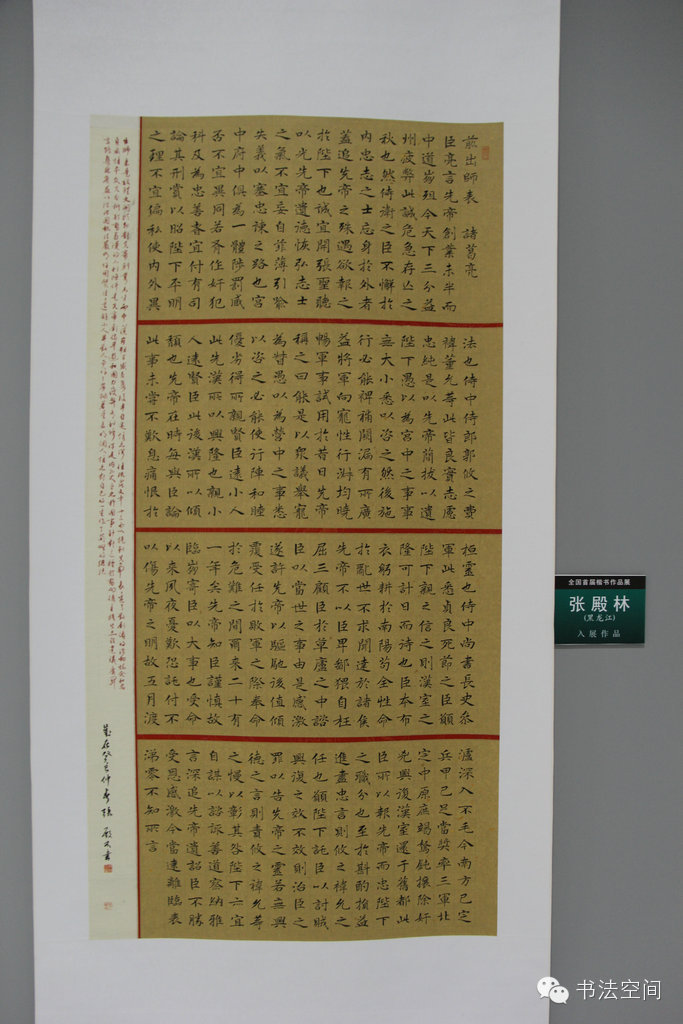 前出師表 諸葛亮
臣亮言先帝創業未半而
中道崩殂今天下三分益
州疲弊此誠危急存亡之
秋也然侍衛之臣不懈於
內忠志之士忘身於外者
蓋追先帝之殊遇欲報之
於陛下也誠宜開張聖聽
以光先帝遺德恢弘志士
之氣不宜妄自菲薄引喻
失義以塞忠諫之路也宮
中府中俱為一體陟罰臧
否不宜異同若有作奸犯
科及為忠善者宜付有司
論其刑賞以昭陛下平明
之理不宜偏私使內外異
法也侍中侍郎郭攸之費
禕董允等此皆良實志慮
忠純是以先帝簡拔以遺
陛下愚以為宮中之事事
無大小悉以咨之然後施
行必能裨補闕漏有所廣
益將軍向寵性行淑均曉
暢軍事試用於昔日先帝
稱之曰能是以眾議舉寵
為督愚以為營中之事悉
以咨之必能使行陣和睦
優劣得所親賢臣遠小人
此先漢所以興隆也親小
人遠賢臣此後漢所以傾
頹也先帝在時每與臣論
此事未嘗不歎息痛恨於
桓靈也侍中尚書長史參
軍此悉貞良死節之臣願
陛下親之信之則漢室之
隆可計日而待也臣本布
衣躬耕於南陽苟全性命
於亂世不求聞達於諸侯
先帝不以臣卑鄙猥自枉
屈三顧臣於草廬之中諮
臣以當世之事由是感激
遂許先帝以驅馳後值傾
覆受任於敗軍之際奉命
於危難之間爾來二十有
一年矣先帝知臣謹慎故
臨崩寄臣以大事也受命
以來夙夜憂歎恐託付不
以傷先帝之明故五月渡
瀘深入不毛今南方已定
兵甲已足當獎率三軍北
定中原庶竭駑鈍攘除奸
兇興復漢室還于舊都此
臣所以報先帝而忠陛下
之職分也至於斟酌損益
進盡忠言則攸之禕允之
任也願陛下託臣以討賊
興復之效不效則治臣之
罪以告先帝之靈若無興
德之言則責攸之禕允等
之慢以彰其咎陛下亦宜
自謀以諮諏善道察納雅
言深追先帝遺詔臣不勝
受恩感激今當遠離臨表
涕零不知所言
歲在癸巳仲春張殿林書
全国首届楷书作品展
张殿林
(黑龙江)
入展作品
书法空间